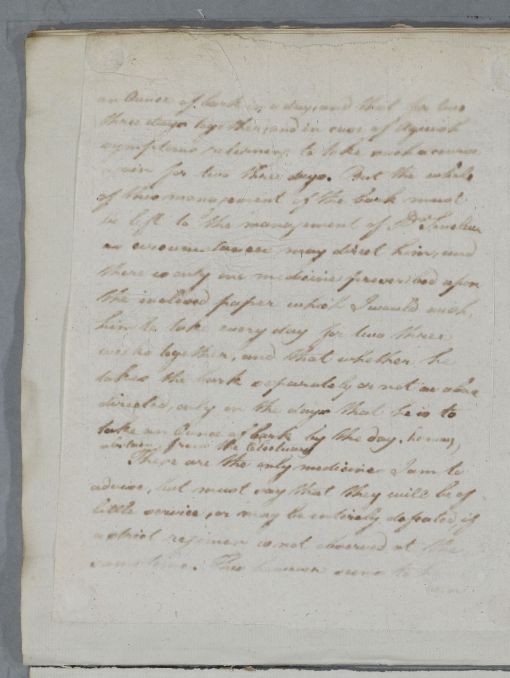 an Ounce of bark in a day, and that for two
three days together, and in case of Aguish
symptoms returning to take such a course
again for two three days. But the whole
of this management of the bark must
be left to the management of Dr
as circumstances may direct him, and
there is only one medicine prescribed upon
the inclosed paper which I would wish
him to take every day for two three
weeks together, and that whether he
takes the bark separately or not as above
directed, only in the days that he is to
take an Ounce of bark by the day, he may
abstain from the Electuary
These are the only medicines I am to
advise, but must say that they will be of
little service, or may be entirely defeated if
a strict regimen is not observed at the
same time. This however seems to